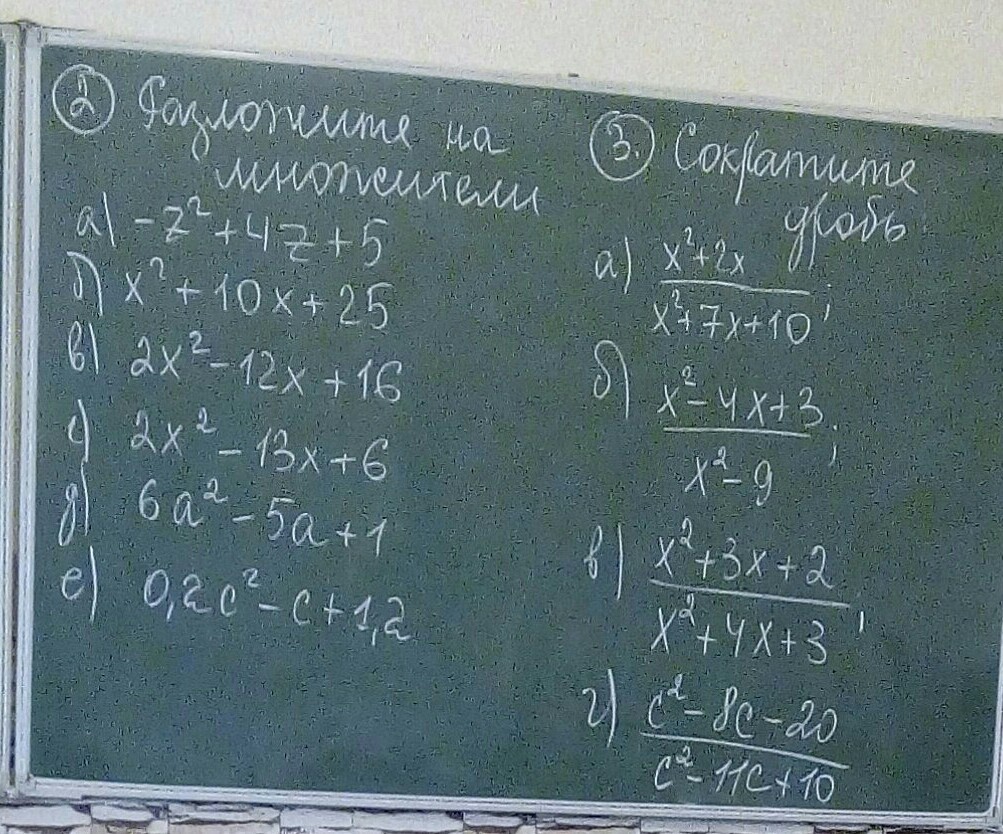 ② Разложите на
множители
а) -z²+4z+5
б) x²+10x+25
в) 2x²-12x+16
с) 2x²-13x+6
д) 6a²-5a+1
е) 0,2c²-c+1,2
③. Сократите
дробь
а) x²+2x
x²+7x+10 ;
б) x²-4x+3
x²-9 ;
в) x²+3x+2
x²+4x+3 ,
г) c²-8c-20
c²-11c+10